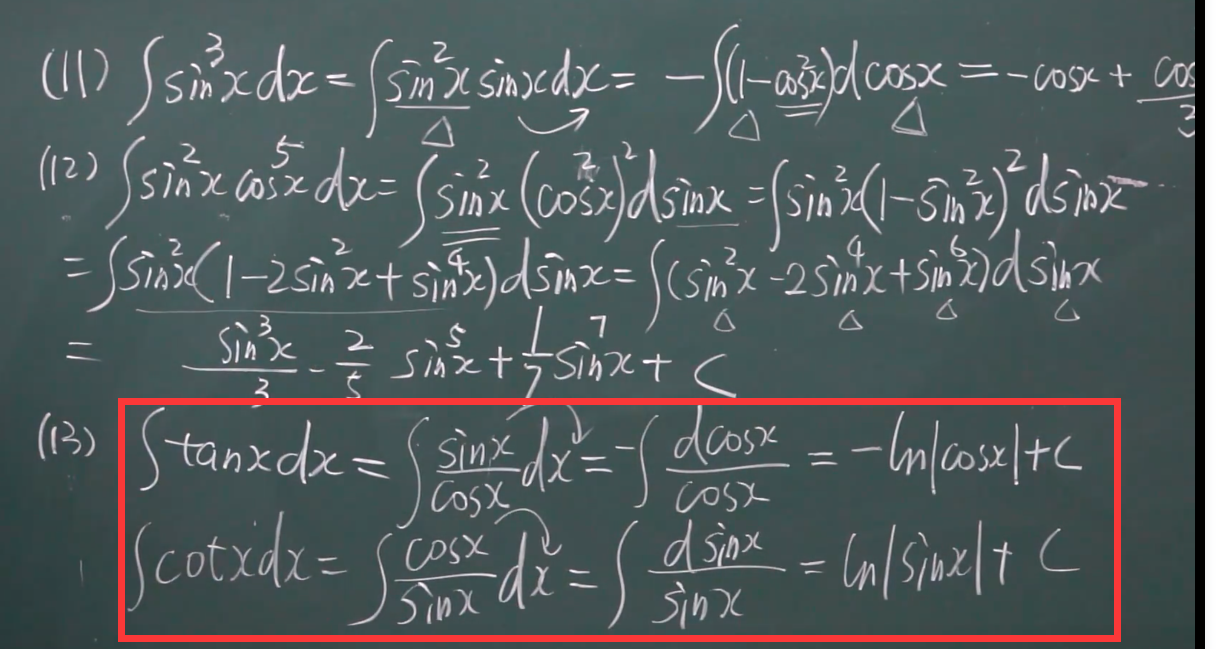 (11) ∫sin³x dx = ∫sin²x sinx dx = -∫(1-cos²x)dcosx = -cosx + cos/3
(12) ∫sin²x cos⁵x dx = ∫sin²x (cos²x)² dsinx = ∫sin²x(1-sin²x)² dsinx
= ∫sin²x(1-2sin²x+sin⁴x)dsinx = ∫(sin²x-2sin⁴x+sin⁶x)dsinx
= sin³x/3 - 2/5 sin⁵x + 1/7 sin⁷x + C
(13) ∫tanx dx = ∫sinx/cosx dx = -∫dcosx/cosx = -ln|cosx|+C
∫cotx dx = ∫cosx/sinx dx = ∫dsinx/sinx = ln|sinx|+C